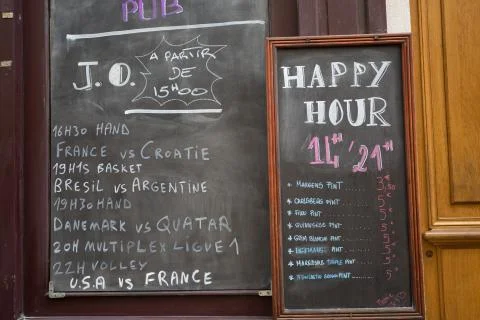 PUB
J.O. A PARTIR
DE
15H00
16H30 HAND
FRANCE vs CROATIE
19H15 BASKET
BRESIL vs ARGENTINE
19H30 HAND
DANEMARK vs QUATAR
20H MULTIPLEX LIGUE 1
22H VOLLEY
U.S.A vs FRANCE
HAPPY
HOUR
14H 21H
PINT
CARLSBERG PINT
PINT
GUINNESS PINT
GRIM BLANCHE PINT
PINT
PINT
PINT